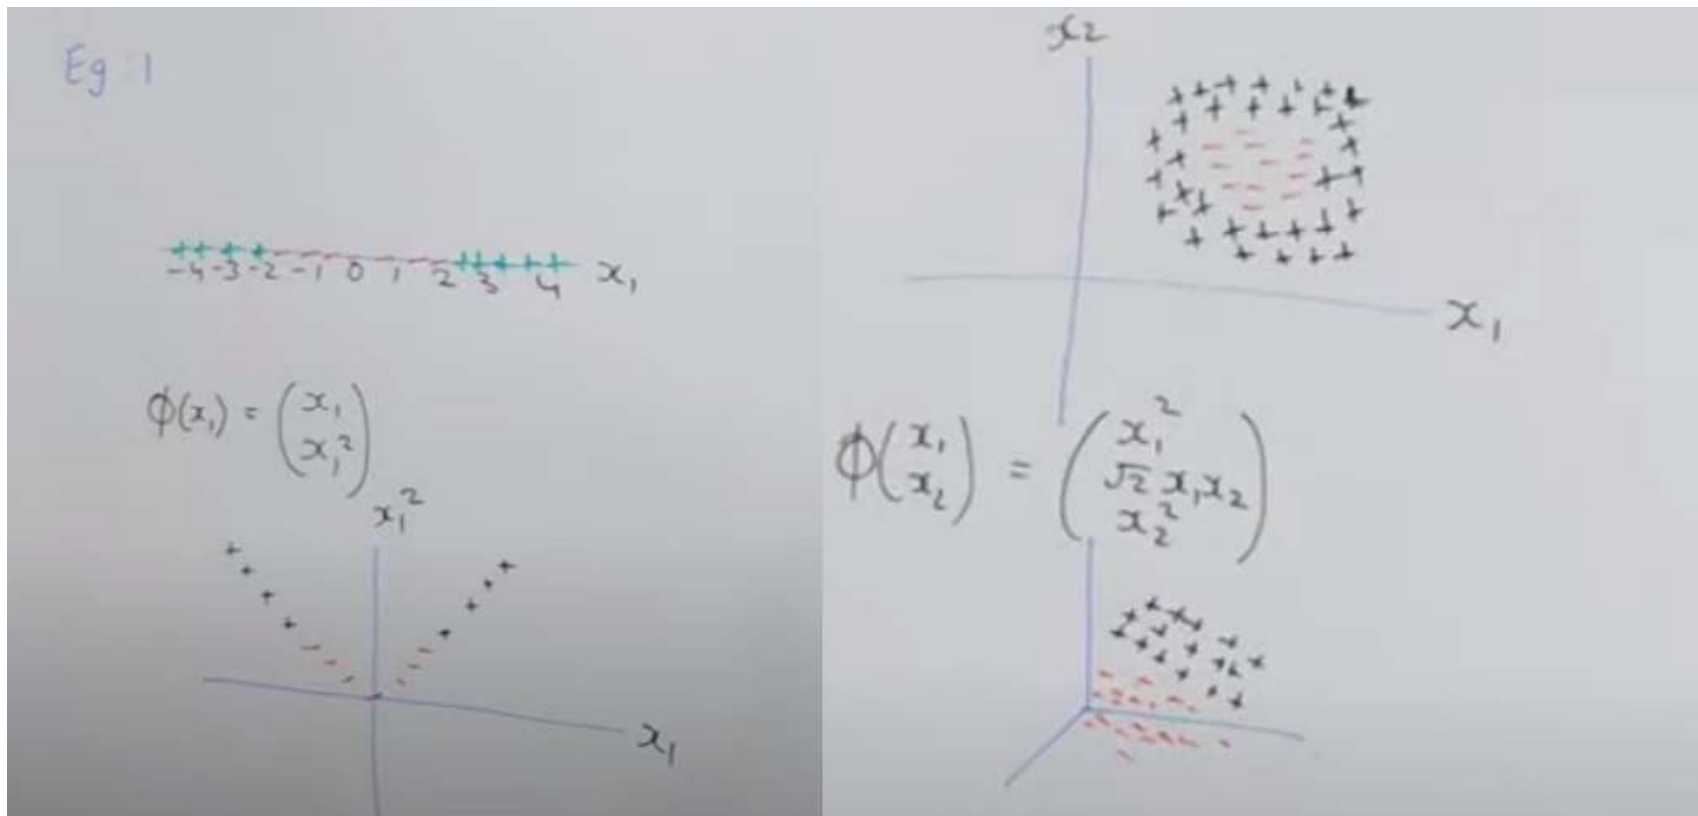 Eg : 1
-4 -3 -2 -1 0 1 2 3 4 x₁
ϕ(x₁) = (x₁
x₁²)
x₁²
x₁
x₂
x₁
ϕ(x₁
x₂) = (x₁²
√2 x₁x₂
x₂²)